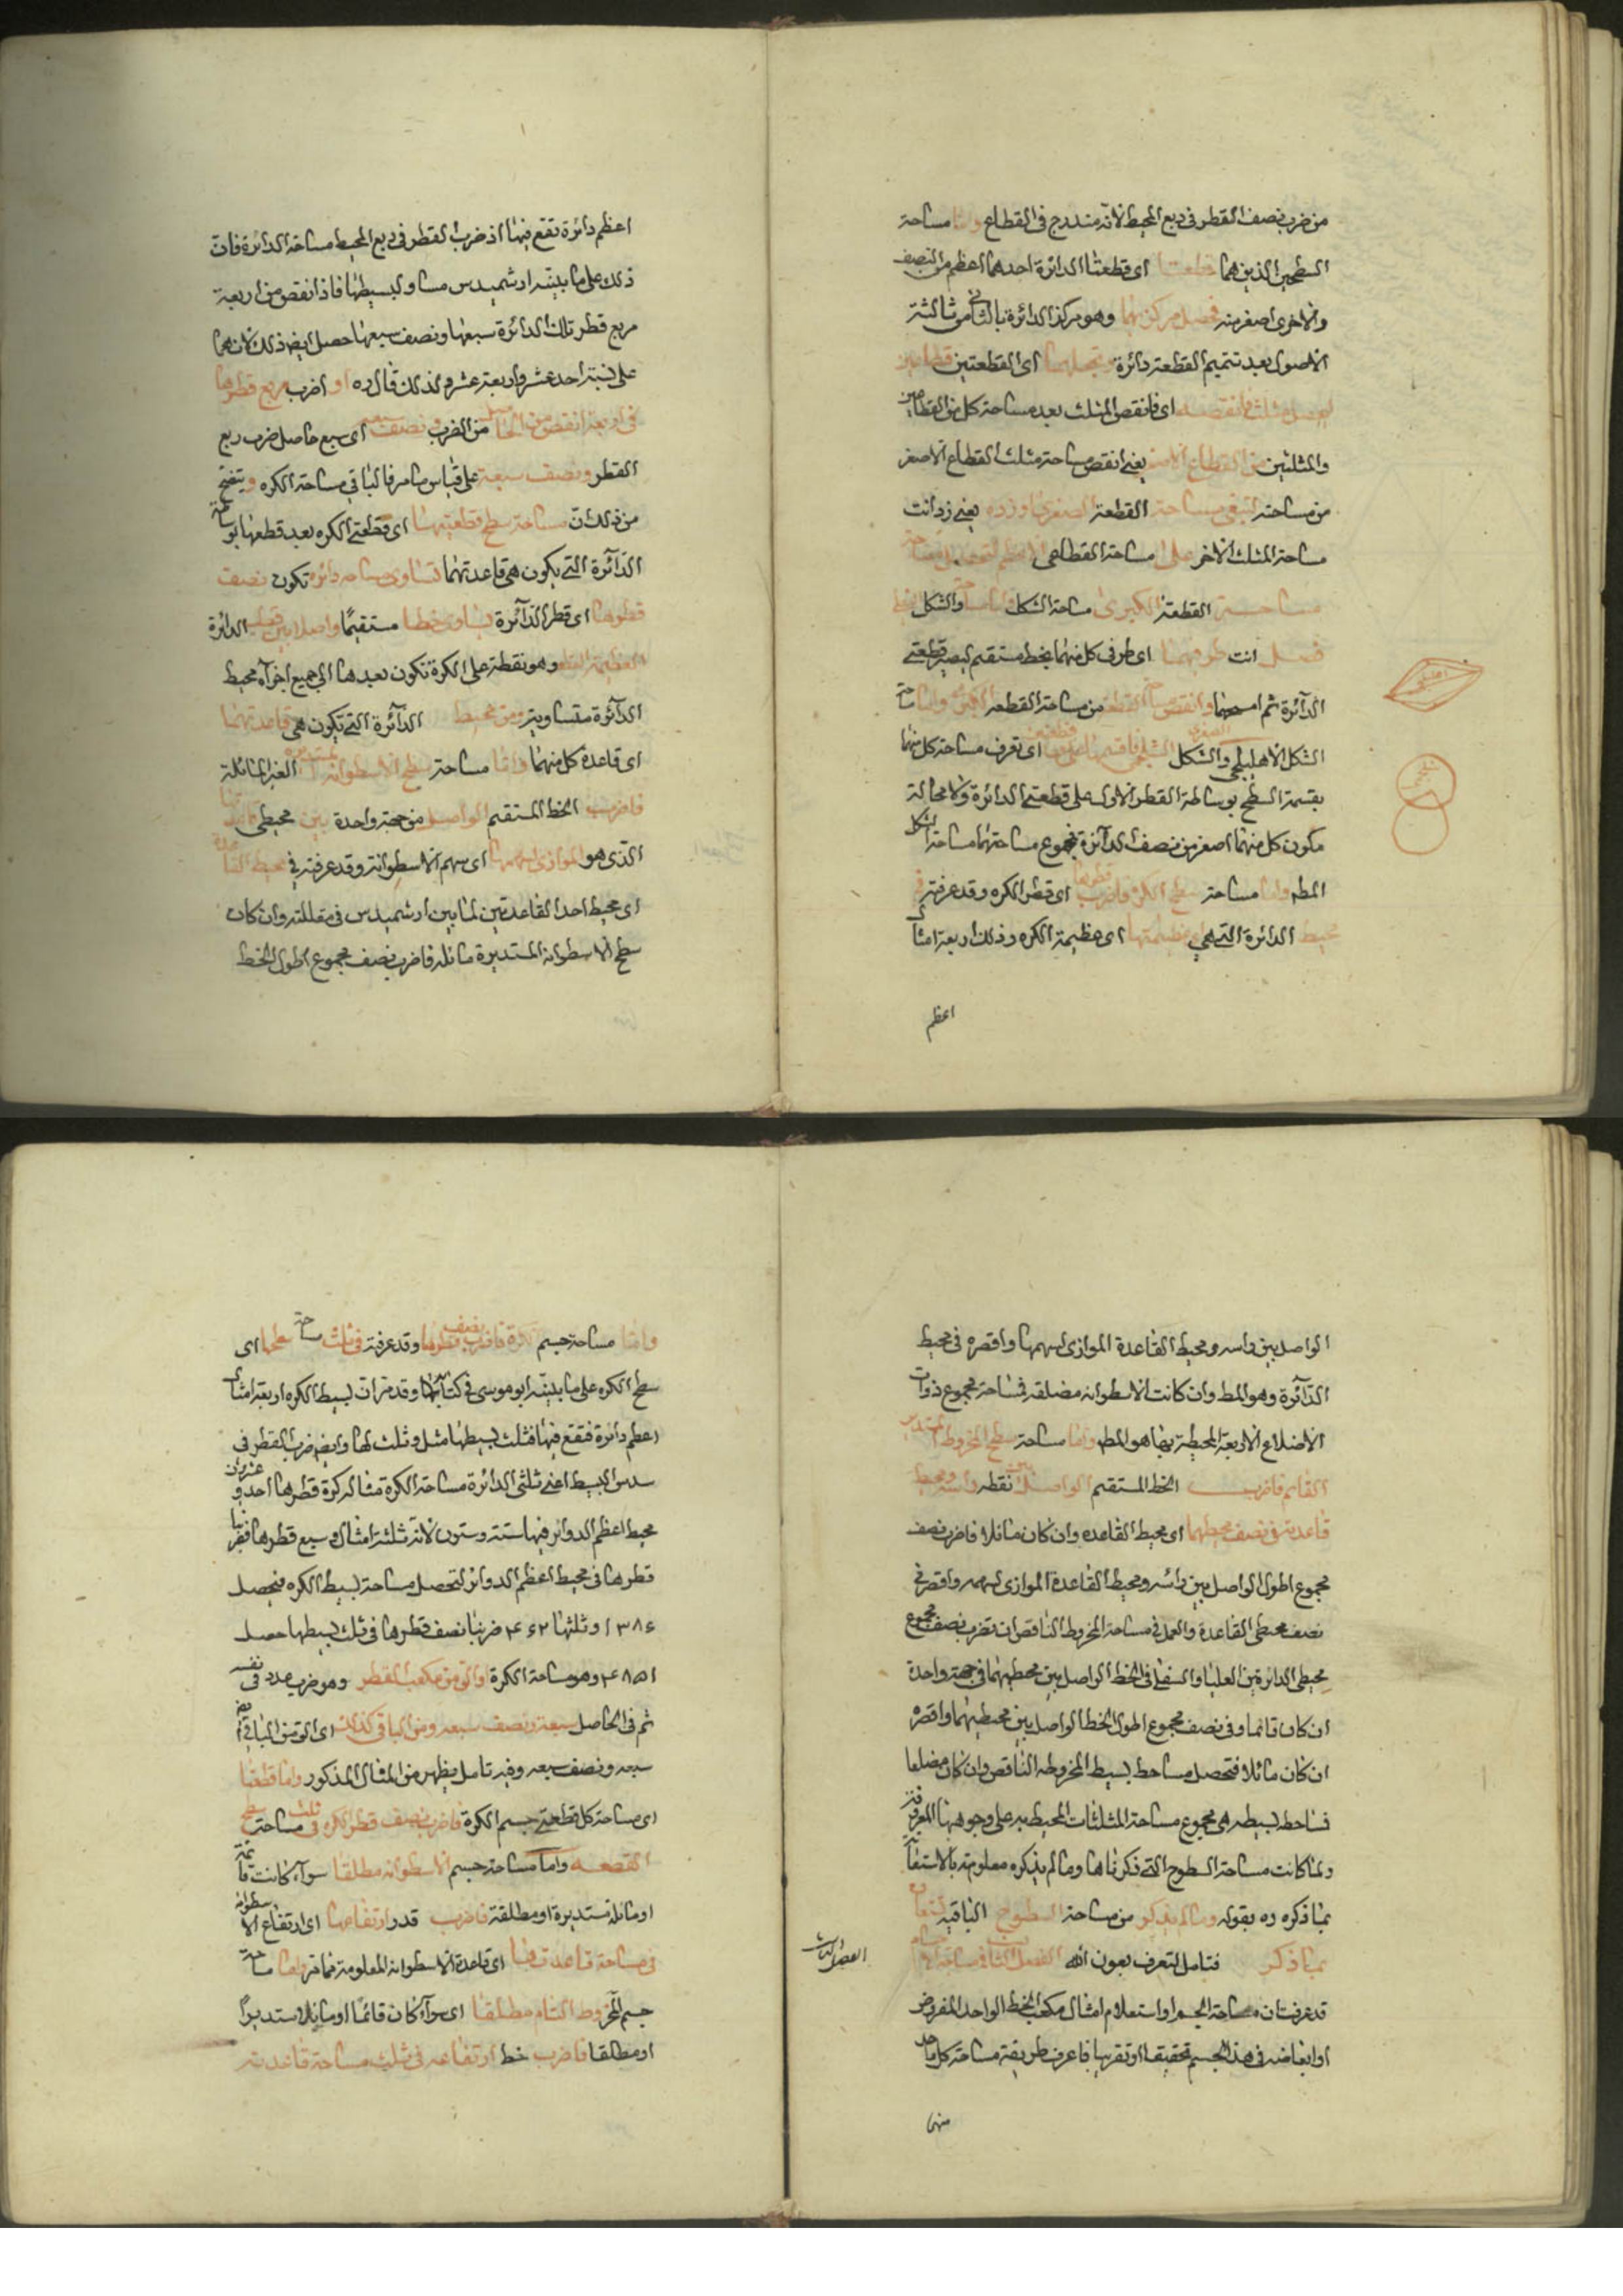 من ضرب نصف القطر فى ربع المحيط لانه مندرج فى القطاع واما مساحة
السطحين الذين هما قطعتا اى قطعتا الدائرة احدهما اعظم من النصف
والاخرى اصغر منه فحصل مركزيهما وهو مركز الدائرة بالثامن ثالثة
الاصول بعد تتميم القطعة دائرة اى القطعتين قطاعين
ليحصل مثلث فانقصه اى فانقص المثلث بعد مساحة كل من القطاعين
والمثلثين من القطاع الاصغر يعنى انقص مساحة مثلث القطاع الاصغر
من مساحته لتبقى مساحة القطعة الصغرى وزده يعنى زد انت
مساحة المثلث الاخر على مساحة القطاعى الاعظم
مساحة القطعة الكبرى مساحة الشكل والشكل
فصل انت طرفيهما اى طرفى كل منهما بخط مستقيم ليصير قطعتى
الدائرة ثم وانقص من مساحة القطعة
الشكل الاهليلجى والشكل الشلجمى فاقسمهما اى تعرف مساحة كل منهما
بقسمة السطح بوساطة القطر الاول على قطعتى الدائرة ولا محالة
يكون كل منهما اصغر من نصف الدائرة فمجموع مساحتهما مساحة الشكل
المط واما مساحة سطح الكره فاضرب قطرها اى قطر الكره وقد عرفته فى
محيط الدائرة التى هى عظيمتها اى عظيمة الكره وذلك اربعة امثال
اعظم
اهليلجى
شلجمى
اعظم دائرة تقع فيها اذ ضرب القطر فى ربع المحيط مساحة الدائرة فان
ذلك على ما بينه ارشميدس مساو لبسيطها فاذا نقص من اربعة
مربع قطر تلك الدائرة سبعها ونصف سبعها حصل ايض ذلك لانهما
على نسبة احد عشر واربعة عشر ولذلك قال ره او اضرب مربع قطرها
فى اربعة انقص من الحاصل من الضرب ونصف سبعه اى سبع حاصل ضرب ربع
القطر ونصف سبعة على قياس ما مر فالباقى مساحة الكره ويتضح
من ذلك ان مساحة سطح قطعتيهما اى قطعتى الكره بعد قطعها بوساطة
الدائرة التى يكون هى قاعدتهما تساوى مساحة دائرة تكون نصف
قطرها اى قطر الدائرة يساوى خطا مستقيما واصلا بين قطب الدائرة
العظيمة القطعه وهو نقطة على الكرة تكون بعدها الى جميع اجزاء محيط
الدائرة متساوية ومن محيط الدائرة التى تكون هى قاعدتهما
اى قاعدة كل منهما واما مساحة سطح الاسطوانة المستديرة الغير المائلة
فاضرب الخط المستقيم الواصل من جهة واحدة بين محيطى قاعدتيها
الذى هو الموازى لسهمها اى سهم الاسطوانة وقد عرفته فى محيط القاعدة
اى محيط احد القاعدتين لما بين ارشميدس فى مقالته وان كان
سطح الاسطوانة المستديرة مائلة فاضرب نصف مجموع اطول الخط
الواصل بين راسه ومحيط القاعدة الموازى لسهمها واقصره فى محيط
الدائرة وهو المط وان كانت الاسطوانه مضلعة فمساحة مجموع ذوات
الاضلاع الاربعة المحيطة بها هو المط واما مساحة سطح المخروط المستدير
القائم فاضرب الخط المستقيم الواصل بين نقطة راسه ومحيط
قاعدته فى نصف محيطها اى محيط القاعده وان كان مائلا فاضرب نصف
مجموع اطول الواصل بين راسه ومحيط القاعدة الموازى لسهمه واقصره فى
نصف محيطى القاعدة والعمل فى مساحة المخروط الناقص ان تضرب نصف مجموع
محيطى الدائرتين العليا والسفلى فى الخط الواصل بين محيطيهما فى جهة واحدة
ان كان قائما وفى نصف مجموع اطول الخط الواصل بين محيطيهما واقصره
ان كان مائلا فتحصل مساحط بسيط المخروطه الناقص وان كان مضلعا
فساحط بسيطه هى مجموع مساحة المثلثات المحيط به على وجوهها المعرفة
ولما كانت مساحة السطوح التى ذكرناها وما لم يذكره معلومة بالاستعانة
بما ذكره ره بقوله وما لم يذكر من مساحة السطوح الباقية
بما ذكر فتامل لتعرف بعون الله الفصل الثالث فى مساحة الاجسام
الفصل الثالث
قد عرفت ان مساحة الجسم او استعلام امثال مكعب الخط الواحد المفروض
او ابعاضه فى هذا الجسم تحقيقا او تقريبا فاعرف طريقة مساحة كل واحد
منها
واما مساحة جسم الكرة فاضرب نصف قطرها وقد عرفته فى ثلث مساحة سطحها اى
سطح الكره على ما بينه ابو موسى فى كتابها وقد مر ان بسيط الكره اربعة امثال
اعظم دائرة تقع فيها فثلث بسيطها مثل وثلث لها وايض ضرب القطر فى
سدس البسيط اعنى ثلثى الدائرة مساحة الكرة مثاله كرة قطرها احد وعشرون
محيط اعظم الدوائر فيها ستة وستون لانه ثلثة امثال وسبع قطرها فضربنا
قطرها فى محيط اعظم الدوائر لتحصل مساحة بسيط الكره فيحصل
١٣٨٤ وثلثها ٤٦٢ ضربنا نصف قطرها فى ثلث بسيطها حصل
٤٨٥١ وهو مساحة الكرة والق من مكعب القطر وهو ضرب عدد فى نفسه
ثم فى الحاصل سبعة ونصف سبعه ومن الباقى كذلك اى الق من الباقى ايض
سبعه ونصف سبعه وفيه تامل يظهر من المثال المذكور واما قطعتها
اى مساحة كل قطعتى جسم الكرة فاضرب نصف قطر الكره فى ثلث مساحة سطح
القطعه واما مساحة جسم الاسطوانه مطلقا سوآء كانت قائمة
او مائلة مستديرة او مطلقة فاضرب قدر ارتفاعها اى ارتفاع الاسطوانه
فى مساحة قاعدتها اى قاعدة الاسطوانه المعلومة مما مر واما مساحة
جسم المخروط التام مطلقا اى سوآء كان قائما او مائلا مستديرا
او مطلقا فاضرب خط ارتفاعه فى ثلث مساحة قاعدته